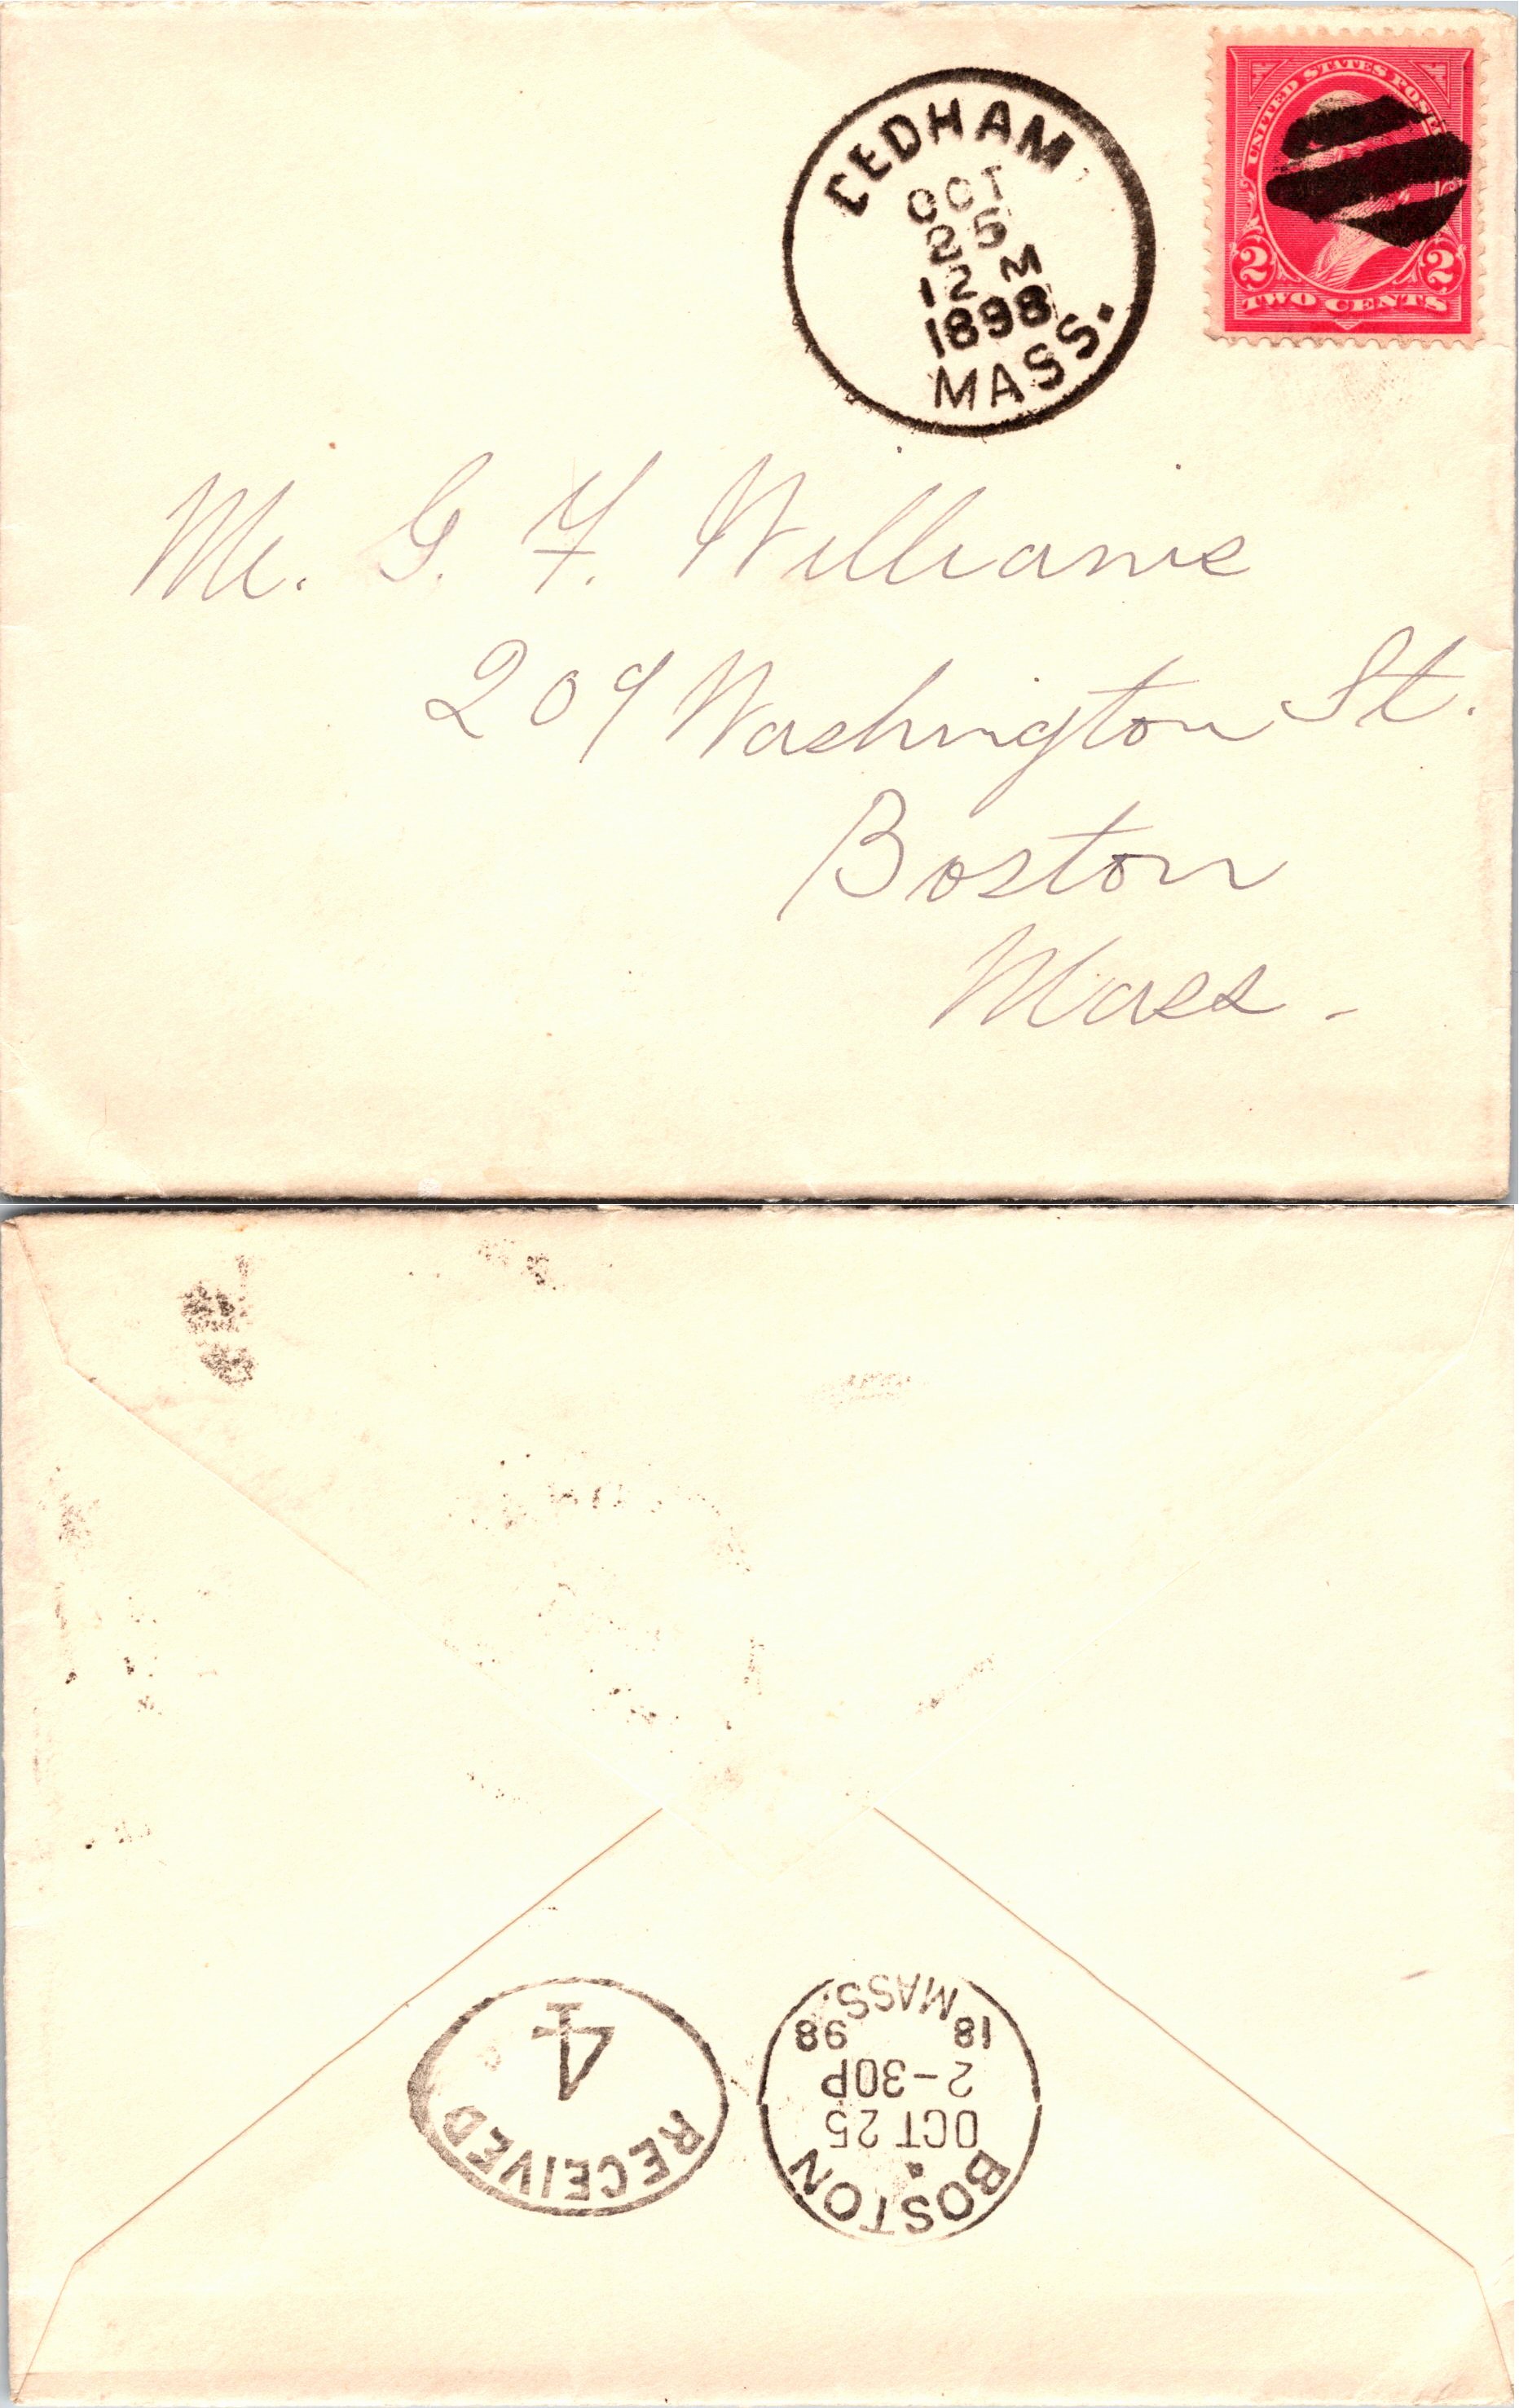 DEDHAM
OCT
25
12 M
1898
MASS.
UNITED STATES POSTAGE
2 2
TWO CENTS
Mr. G. F. Williams
209 Washington St.
Boston
Mass -
RECEIVED
4
BOSTON
OCT 25
2-30P
18 98
MASS.